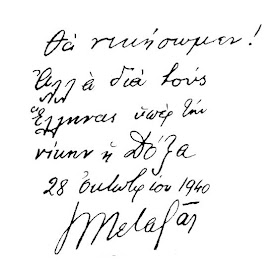 Θά νικήσωμεν!
Ἀλλὰ διὰ τούς
Ἕλληνας ὑπέρ τήν
νίκην ἡ Δόξα
28 ὀκτωβρίου 1940
Ι Μεταξᾶς